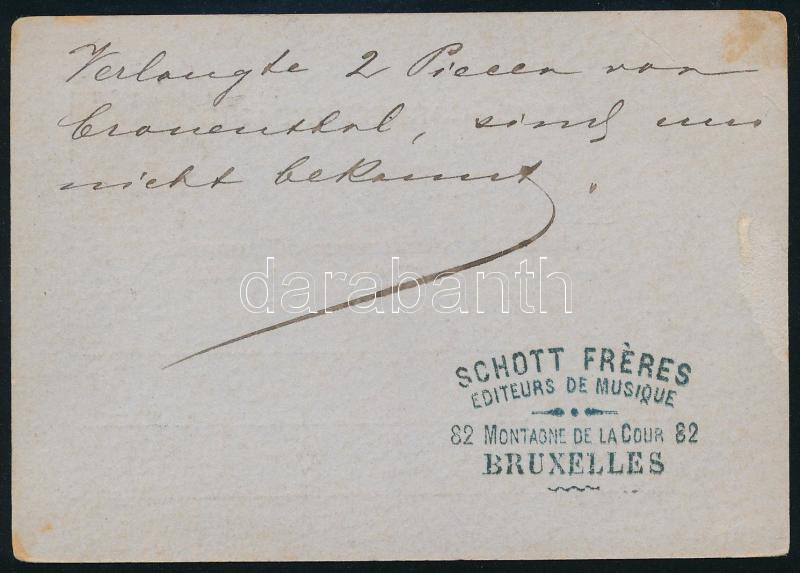 Verlangte 2 Piecen von
Cronenthal, sind uns
nicht bekannt.
darabanth
SCHOTT FRÈRES
EDITEURS DE MUSIQUE
82 MONTAGNE DE LA COUR 82
BRUXELLES